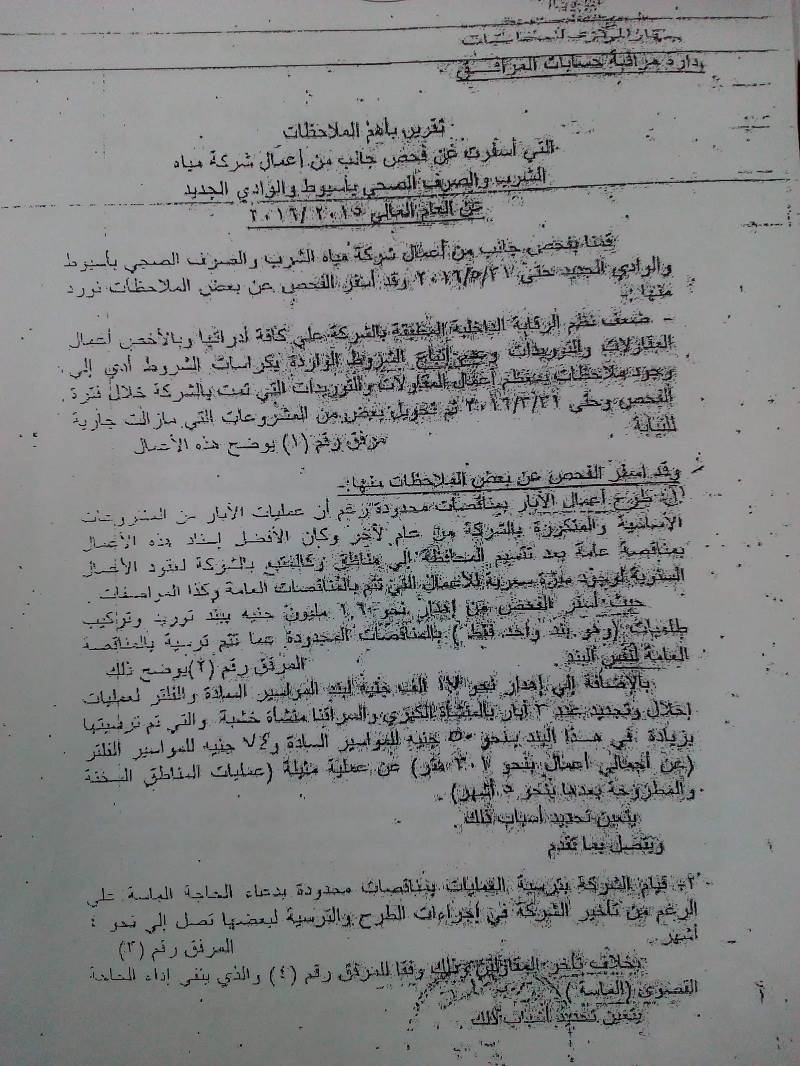 الجهاز المركزي للمحاسبات
إدارة مراقبة حسابات المرافق
تقرير بأهم الملاحظات
التي أسفرت عن فحص جانب من أعمال شركة مياه
الشرب والصرف الصحي بأسيوط والوادي الجديد
عن العام المالي ٢٠١٦/٢٠١٥
قمنا بفحص جانب من أعمال شركة مياه الشرب والصرف الصحي بأسيوط
والوادي الجديد حتى ٢٠١٦/٥/٣١ وقد أسفر الفحص عن بعض الملاحظات نورد
منها :-
- ضعف نظم الرقابة الداخلية المطبقة بالشركة علي كافة أدرافها وبالأخص أعمال
المقاولات والتوريدات وعدم إتباع الشروط الواردة بكراسات الشروط أدي إلي
وجود ملاحظات بمعظم أعمال المقاولات والتوريدات التي تمت بالشركة خلال فترة
الفحص وحتى ٢٠١٦/٣/٣١ تم تحويل بعض من المشروعات التي مازالت جارية
للنيابة
مرفق رقم (١) يوضح هذه الأعمال
وقد أسفر الفحص عن بعض الملاحظات منها:-
١- طرح أعمال الآبار بمناقصات محدودة رغم أن عمليات الآبار من المشروعات
الأساسية والمتكررة بالشركة من عام لآخر وكان الأفضل إسناد هذه الأعمال
بمناقصة عامة بعد تقسيم المحافظة إلي مناطق وكالمتبع بالشركة لعقود الأعمال
السنوية لوجود ميزة سعرية للأعمال التي تتم بالمناقصات العامة وكذا المواصفات.
حيث أسفر الفحص عن إهدار نحو ١,٦ مليون جنيه ببند توريد وتركيب
طلمبات (وهو بند واحد فقط) بالمناقصات المحدودة عما تتم ترسية بالمناقصة
العامة لنفس البند. المرفق رقم (٢) يوضح ذلك
بالإضافة إلي إهدار نحو ١٧ ألف جنيه لبند المواسير السادة والفلتر لعمليات
إحلال وتجديد عدد ٣ آبار بالمنشأة الكبري والمراقنا منشأة خشبة والتي تم ترسيتها
بزيادة في هذا البند بنحو ٥٠ جنيه للمواسير السادة و٧٤ جنيه للمواسير الفلتر
(عن أجمالي أعمال بنحو ٣٠١ متر) عن عملية مثيلة (عمليات المناطق الساخنة
والمطروحة بعدها بنحو ٥ أشهر).
يتعين تحديد أسباب ذلك
ويتصل بما تقدم
٢- قيام الشركة بترسية العمليات بمناقصات محدودة بدعاء الحاجة الماسة علي
الرغم من تأخير الشركة في إجراءات الطرح والترسية لبعضها تصل إلي نحو ٤
أشهر. المرفق رقم (٣)
بخلاف تأخر المقاولين وذلك وفقا للمرفق رقم (٤) والذي ينفي إداء الحاجة
القصوي (الماسة)
يتعين تحديد أسباب ذلك